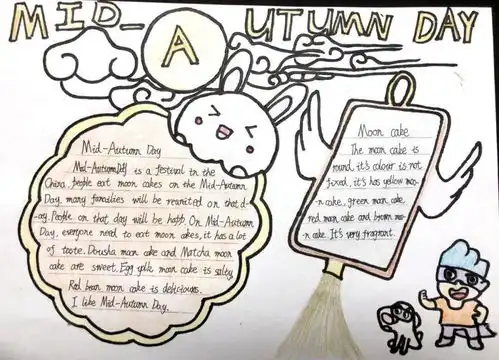 MID-AUTUMN DAY
Mid-Autumn Day
Mid-Autumn Day is a festival in the
China. people eat moon cakes on the Mid-Autumn
Day, many families will be reunited on that d-
-ay. People on that day will be happ. On Mid-Autumn
Day, everyone need to eat moon cakes, it has a lot
of taste. Dousha moon cake and Matcha moon
cake are sweet. Egg yulk moon cake is salty.
Red bean moon cake is delicious.
I like Mid-Autumn Day.
Moon cake
The moon cake is
round, it's colour is not
fixed, it's has yellow moo-
-n cake, green moon cake,
red moon cake and brown moo-
-n cake. It's very fragrant.